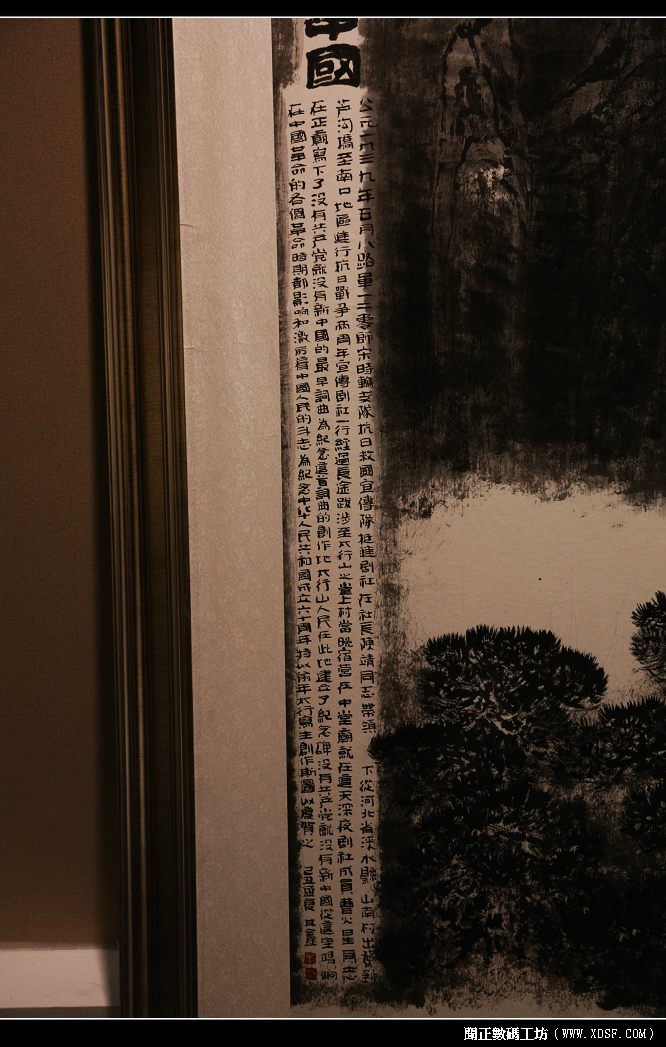 中國
公元一九三九年五月八路軍一二零師宋時輪支隊抗日救國宣傳隊挺進劇社在社長陳靖同志帶領下從河北省涞水縣山南村出發到
芦沟橋至南口地區進行抗日戰爭兩周年宣傳劇社一行經過長途跋涉至太行山之堂上村當晚宿營在中堂廟就在這天深夜劇社成員曹火星同志
在正廟寫下了沒有共产党就沒有新中國的最早詞曲為紀念這首詞曲的創作地太行山人民在此地建立了紀念碑沒有共产党就沒有新中國從這里唱响
在中國革命的各個革命時期都影响和激厉着中國人民的斗志為紀念中华人民共和國成立六十周年特以旧年太行寫生創作斯圖以慶賀之 己丑孟夏
聞正數碼工坊（WWW.XDSF.COM）